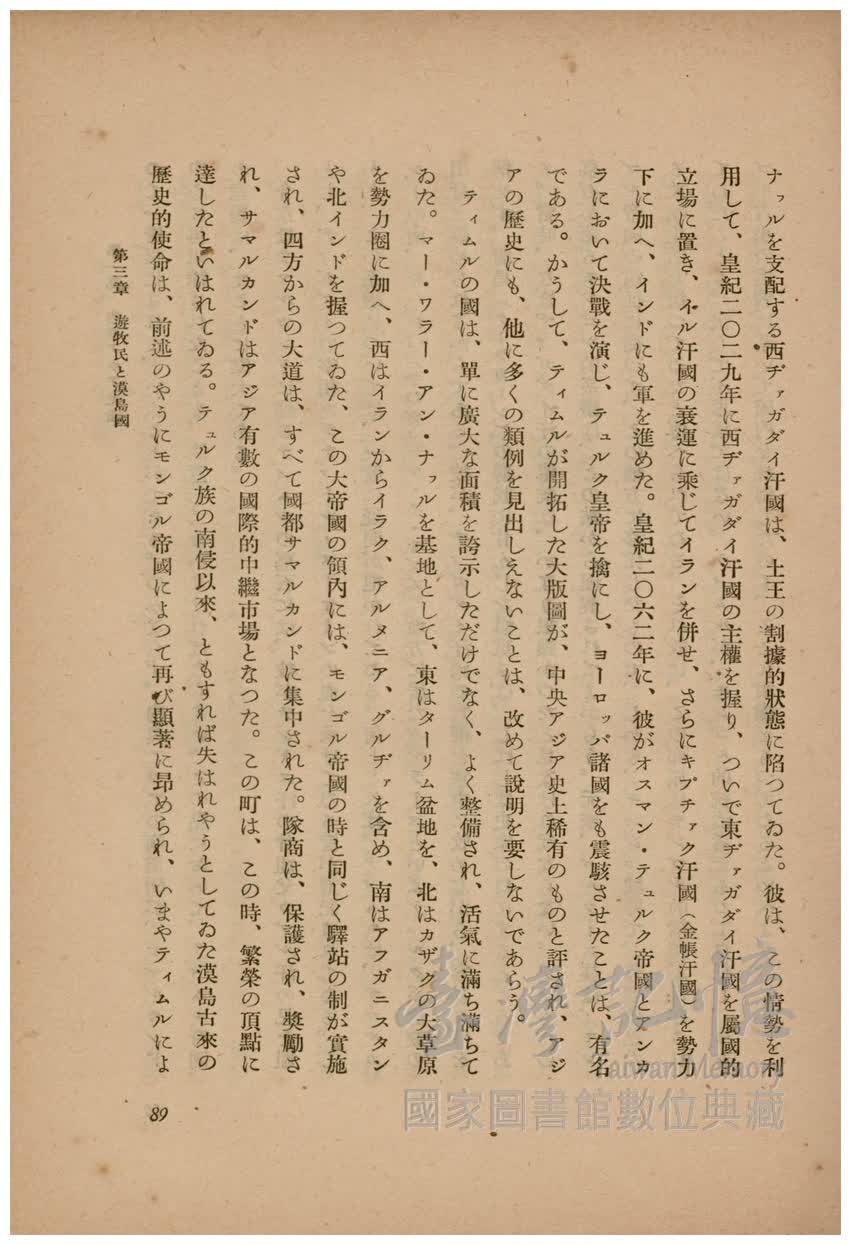 ナァルを支配する西ヂァガダイ汗國は、土王の割據的狀態に陷つてゐた。彼は、この情勢を利
用して、皇紀二〇二九年に西ヂァガダイ汗國の主權を握り、ついで東ヂァガダイ汗國を屬國的
立場に置き、イル汗國の衰運に乘じてイランを併せ、さらにキプチァク汗國（金帳汗國）を勢力
下に加へ、インドにも軍を進めた。皇紀二〇六二年に、彼がオスマン・テュルク帝國とアンカ
ラにおいて決戰を演じ、テュルク皇帝を擒にし、ヨーロッパ諸國をも震駭させたことは、有名
である。かうして、ティムルが開拓した大版圖が、中央アジア史上稀有のものと評され、アジ
アの歷史にも、他に多くの類例を見出しえないことは、改めて說明を要しないであらう。
ティムルの國は、單に廣大な面積を誇示しただけでなく、よく整備され、活氣に滿ち滿ちて
ゐた。マー・ワラー・アン・ナァルを基地として、東はターリム盆地を、北はカザクの大草原
を勢力圈に加へ、西はイランからイラク、アルメニア、グルヂァを含め、南はアフガニスタン
や北インドを握つてゐた、この大帝國の領內には、モンゴル帝國の時と同じく驛站の制が實施
され、四方からの大道は、すべて國都サマルカンドに集中された。隊商は、保護され、奬勵さ
れ、サマルカンドはアジア有數の國際的中繼市場となつた。この町は、この時、繁榮の頂點に
達したといはれてゐる。テュルク族の南侵以來、ともすれば失はれやうとしてゐた漠島古來の
歷史的使命は、前述のやうにモンゴル帝國によつて再び顯著に昂められ、いまやティムルによ
第三章 遊牧民と漠島國
89
臺灣記憶
Taiwan Memory
國家圖書館數位典藏